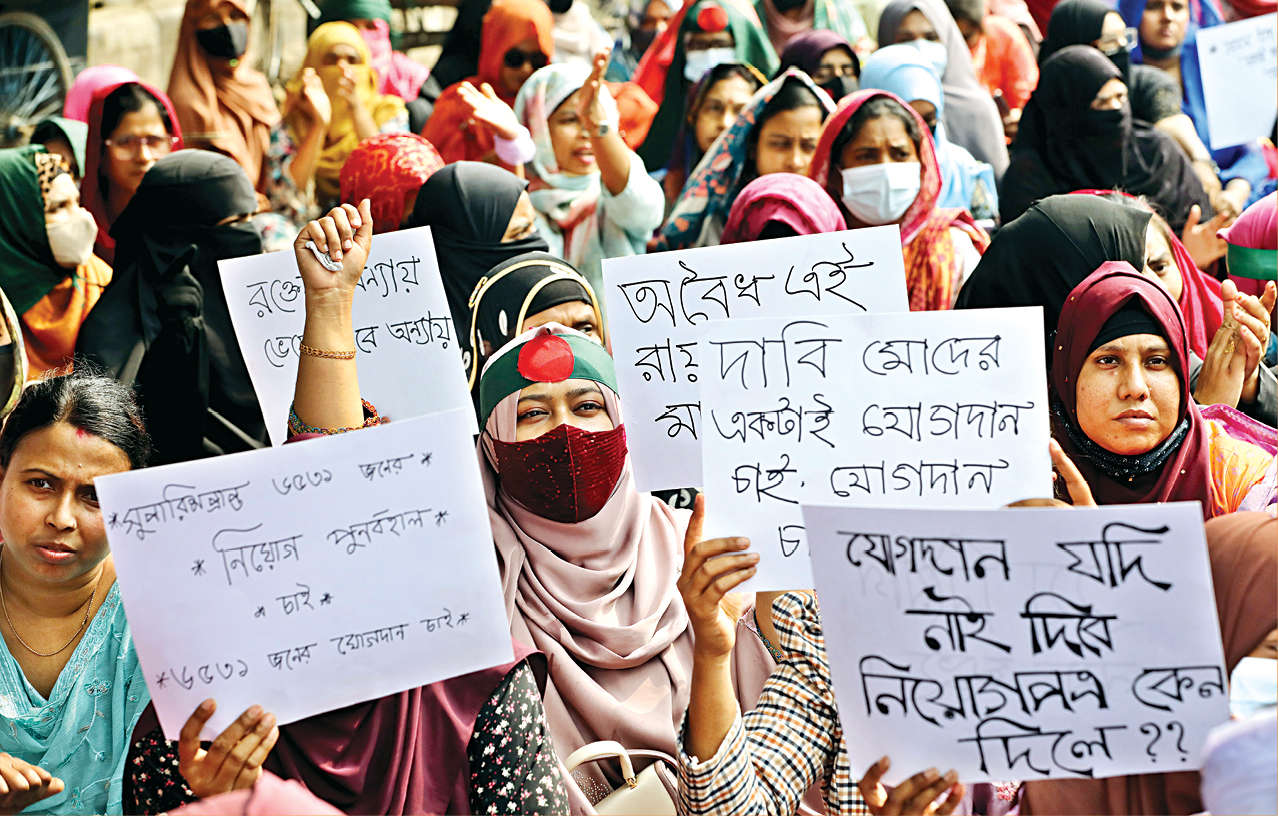 রক্তে
অন্যায়
অন্যায়
অবৈধ এই
রায়
দাবি মোদের
একটাই যোগদান
চাই. যোগদান
*সুপারিশপ্রাপ্ত ৬৫৩১ জনের *
* নিয়োগ পুনর্বহাল *
* চাই *
*৬৫৩১ জনের যোগদান চাই*
যোগদান যদি
নাই দিবে
নিয়োগপত্র কেন
দিলে??